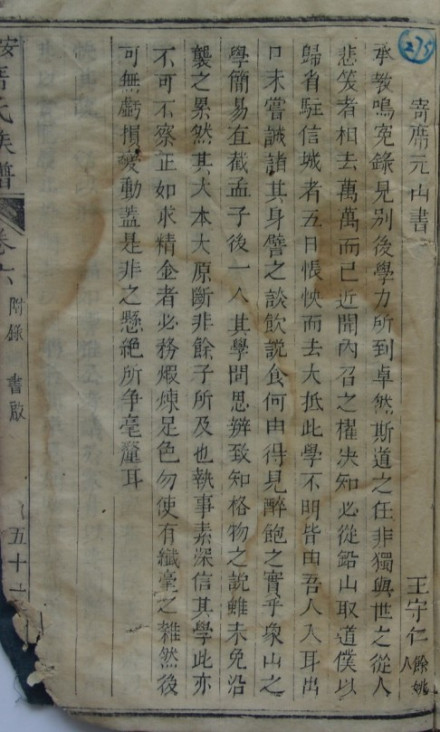 275
寄席元山書 王守仁 餘姚人
承教鳴寃錄見別後學力所到卓然斯道之任非獨與世之從人
悲笑者相去萬萬而已近聞內召之擢决知必從鉛山取道僕以
歸省駐信城者五日悵怏而去大抵此學不明皆由吾人入耳出
口未嘗誠諸其身譬之談飲說食何由得見醉飽之實乎象山之
學簡易直截孟子後一人其學問思辨致知格物之說雖未免沿
襲之累然其大本大原斷非餘子所及也執事素深信其學此亦
不可不察正如求精金者必務煆煉足色勿使有纖毫之雜然後
可無虧損變動蓋是非之懸絕所争毫釐耳
氏族譜 卷六 附錄 書啟 五十